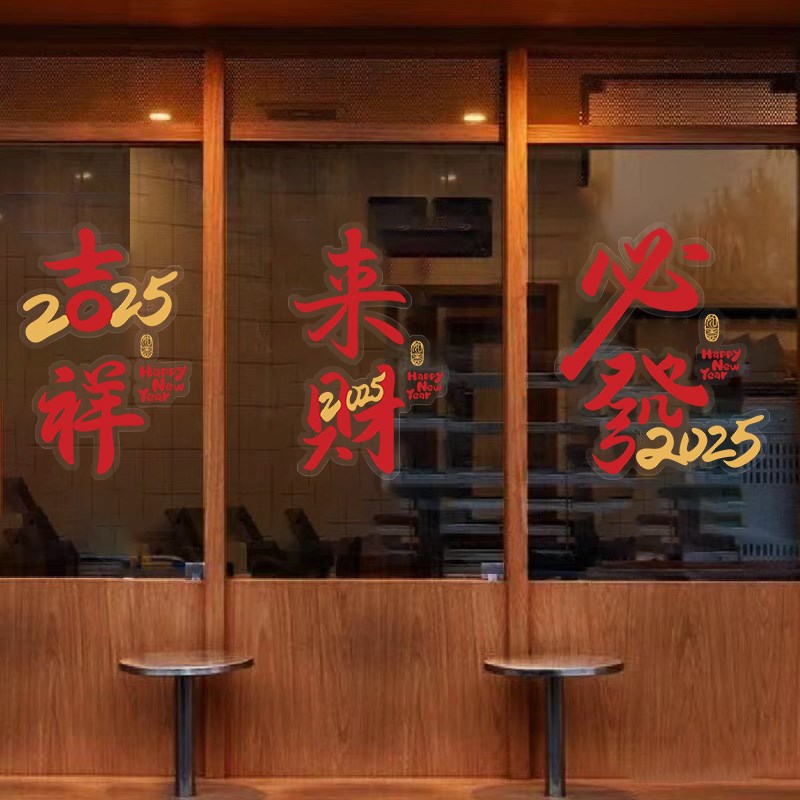 吉
2025
祥
Happy
New
Year
来
财
2025
Happy
New
Year
必
發
2025
Happy
New
Year